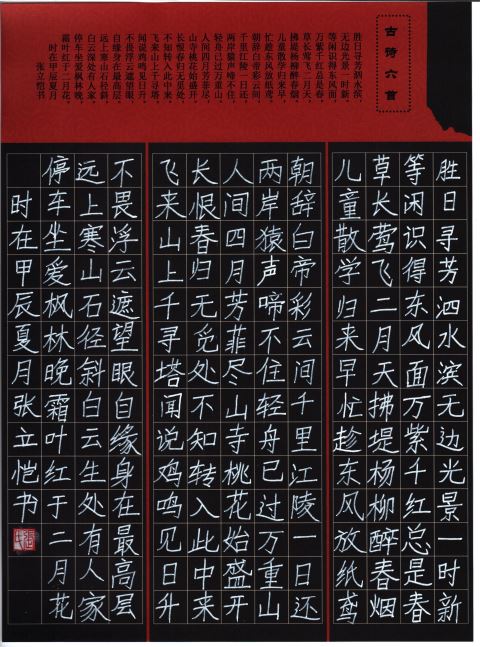 古诗六首
胜日寻芳泗水滨，
无边光景一时新。
等闲识得东风面，
万紫千红总是春。
草长莺飞二月天，
拂堤杨柳醉春烟。
儿童散学归来早，
忙趁东风放纸鸢。
朝辞白帝彩云间，
千里江陵一日还。
两岸猿声啼不住，
轻舟已过万重山。
人间四月芳菲尽，
山寺桃花始盛开。
长恨春归无觅处，
不知转入此中来。
飞来山上千寻塔，
闻说鸡鸣见日升。
不畏浮云遮望眼，
自缘身在最高层。
远上寒山石径斜，
白云深处有人家。
停车坐爱枫林晚，
霜叶红于二月花。
时在甲辰夏月
张立恺书
胜日寻芳泗水滨无边光景一时新
等闲识得东风面万紫千红总是春
草长莺飞二月天拂堤杨柳醉春烟
儿童散学归来早忙趁东风放纸鸢
朝辞白帝彩云间千里江陵一日还
两岸猿声啼不住轻舟已过万重山
人间四月芳菲尽山寺桃花始盛开
长恨春归无觅处不知转入此中来
飞来山上千寻塔闻说鸡鸣见日升
不畏浮云遮望眼自缘身在最高层
远上寒山石径斜白云生处有人家
停车坐爱枫林晚霜叶红于二月花
时在甲辰夏月张立恺书